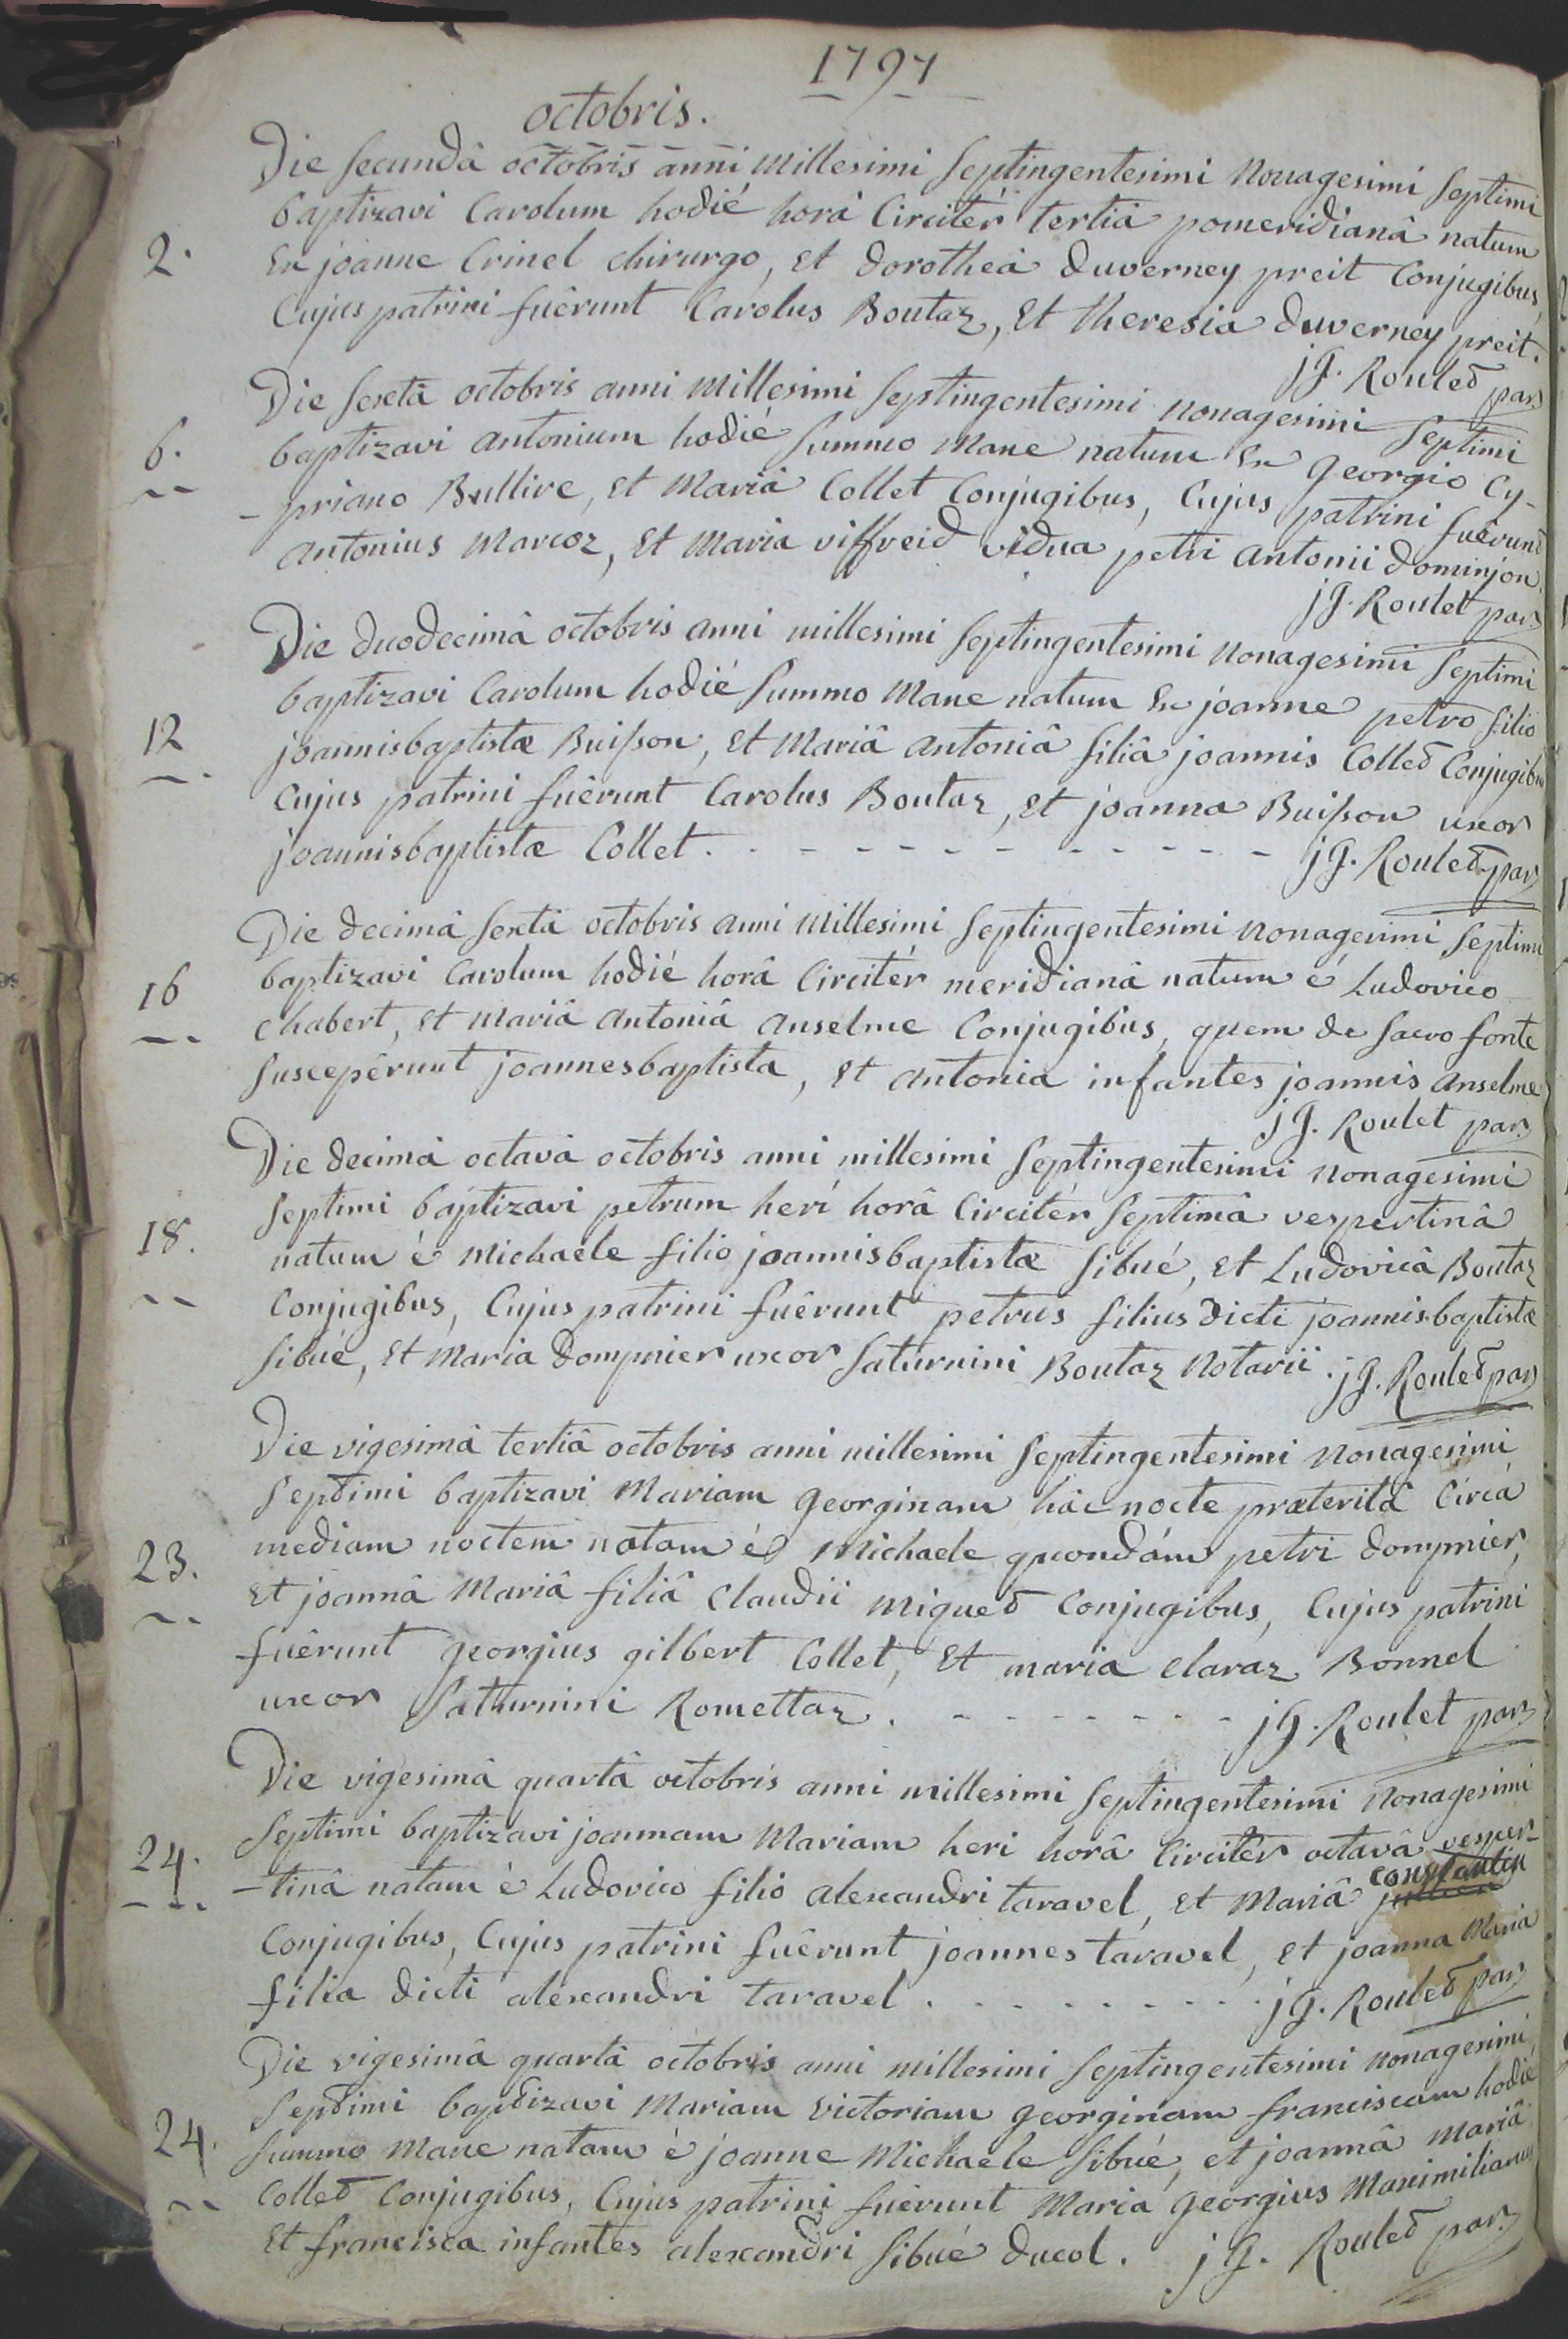 1797
octobris.
Die secundâ octobris anni millesimi septingentesimi nonagesimi septimi
2. baptizavi Carolum hodié horâ Circitér tertiâ pomeridianâ natum
Ex joanne Crinel chirurgo, et dorotheâ duverney preit Conjugibus,
Cujus patrini fuêrunt Carolus Boutaz, Et theresia duverney preit.
jg. Roulet par.
Die sextâ octobris anni millesimi septingentesimi nonagesimi septimi
6. baptizavi antonium hodié summo mane natum Ex georgio Cy-
-priano Bullire, et Mariâ Collet Conjugibus, Cujus patrini fuêrunt
antonius Marcoz, Et Maria viffreid vidua petri antonii dominjon.
jg. Roulet par.
Die duodecimâ octobris anni millesimi septingentesimi nonagesimi septimi
baptizavi Carolum hodié summo Mane natum Ex joanne petro filio
12 joannisbaptistæ Buisson, Et Mariâ antoniâ filiâ joannis Collet Conjugibus
Cujus patrini fuêrunt Carolus Boutaz, Et joanna Buisson uxor
joannisbaptistæ Collet. - - - - - - - - - - jg. Roulet par.
Die decimâ sextâ octobris anni millesimi septingentesimi nonagesimi septimi
16 baptizavi Carolum hodié horâ Circitér meridianâ natum é Ludovico
Chabert, et mariâ antoniâ anselme Conjugibus, quem de sacro fonte
suscepêrunt joannesbaptista, Et antonia infantes joannis anselme
jg. Roulet par.
Die decimâ octavâ octobris anni millesimi septingentesimi nonagesimi
septimi baptizavi petrum heri horâ Circitér septimâ vespertinâ
18. natum é michaele filio joannisbaptistæ sibué, Et Ludovicâ Boutaz
Conjugibus, Cujus patrini fuêrunt petrus filius dicti joannisbaptistæ
sibué, Et Maria dompnier uxor saturnini Boutaz Notarii. jg. Roulet par.
Die vigesimâ tertiâ octobris anni millesimi septingentesimi nonagesimi
septimi baptizavi Mariam georginam hâc nocte præteritâ Circà
23. mediam noctem natam é Michaele quondám petri dompnier,
Et joannâ Mariâ filiâ Claudii miquet Conjugibus, Cujus patrini
fuêrunt georgius gilbert Collet, Et maria Claraz Bonnel
uxor saturnini Romettaz. - - - - - - - jg. Roulet par.
Die vigesimâ quartâ octobris anni millesimi septingentesimi nonagesimi
septimi baptizavi joannam Mariam heri horâ Circitér octavâ vesper-
24. -tinâ natam é Ludovico filio alexandri taravel, et Mariâ constantin
Conjugibus, Cujus patrini fuêrunt joannes taravel, et joanna Maria
filia dicti alexandri taravel . . . . . . . . jg. Roulet par.
Die vigesimâ quartâ octobris anni millesimi septingentesimi nonagesimi
septimi baptizavi Mariam victoriam georginam franciscam hodie
24. summo mane natam é joanne Michaele sibué, et joannâ mariâ
Collet Conjugibus, Cujus patrini fuêrunt Maria georgius Maximilianus
Et francisca infantes alexandri sibué ducol. jg. Roulet par.